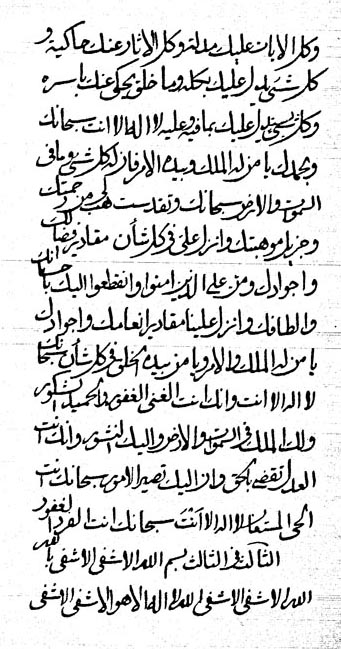 وكل الايات عليك مدلة وكل الاثار عنك حاكية و
كل شئ يدل عليك بكله وما خلق يحكى عنك باسره
وكل شئ يدل عليك بما فيه وعليه لا اله الا انت سبحانك
وبحمدك يا من له الملك وبيده الامر فان له كل شئ وما فى
السموات والارض سبحانك وتقدست هب لى من رحمتك
وجزيل موهبتك وانزل على فى كل شأن مقادير فضلك
واجوادك ومن على الذين امنوا وانقطعوا اليك باحسانك
والطافك وانزل علينا مقادير انعامك واجوادك
يا من له الملك والامر ويا من بيده الخلق فى كل شأن سبحانك
لا اله الا انت وانك انت الغنى الغفور ذى الحميد الشكور
ولك الملك فى السموات والارض واليك النشور وانك انت
العدل تقضى بالحق وان اليك تصير الامور سبحانك انت
الحى المستعان لا اله الا انت سبحانك انت الفرد الغفور
الثالث فى الثالث بسم الله الاشفى الاشفى
الله الاشفى الاشفى الله لا اله الا هو الاشفى الاشفى